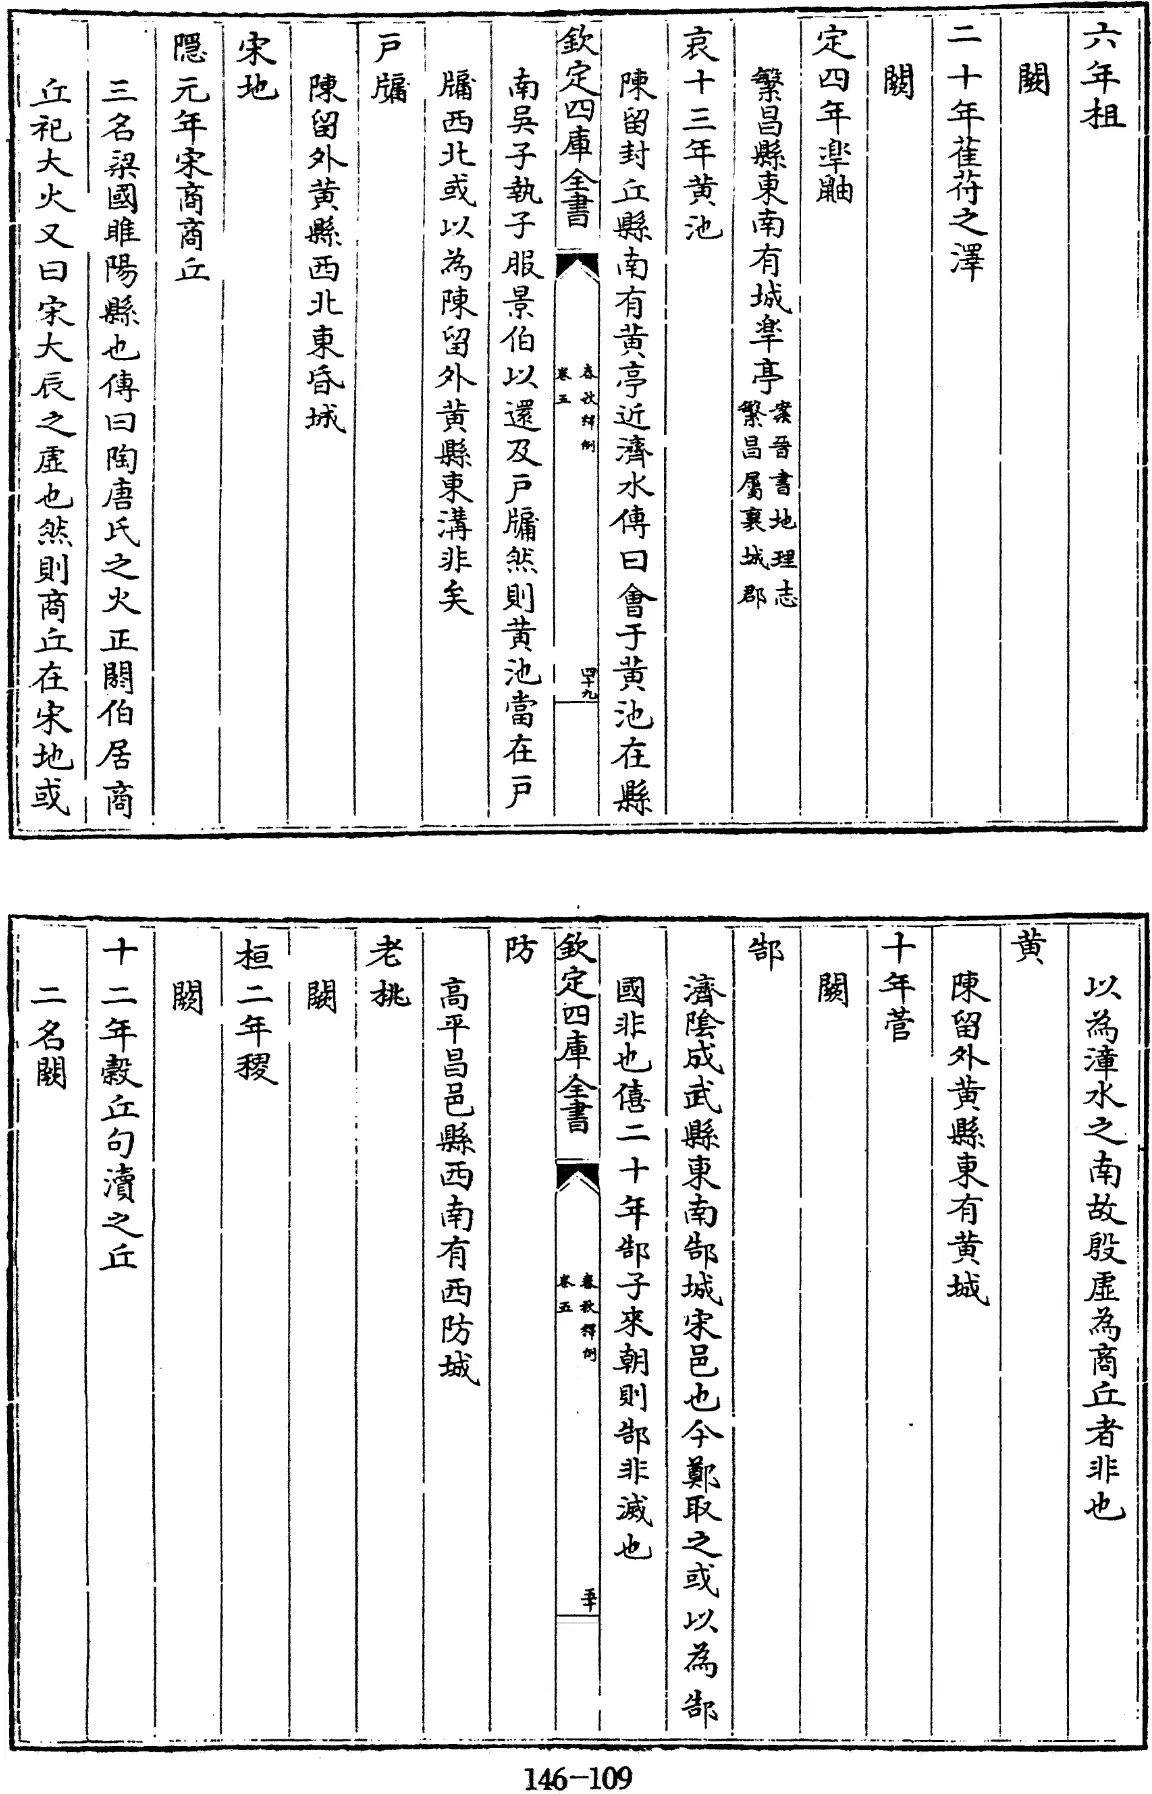 六年柤
闕
二十年萑苻之澤
闕
定四年臯鼬
繁昌縣東南有城臯亭
案晉書地理志
繁昌屬襄城郡
哀十三年黄池
陳留封丘縣南有黄亭近濟水傳曰會于黄池在縣
欽定四庫全書
春秋釋例
卷五
四十九
南吳子執子服景伯以還及戸牖然則黄池當在戸
牖西北或以為陳留外黄縣東溝非矣
戸牖
陳留外黄縣西北東昏城
宋地
隱元年宋商商丘
三名梁國睢陽縣也傳曰陶唐氏之火正閼伯居商
丘祀大火又曰宋大辰之虛也然則商丘在宋地或
以為漳水之南故殷虛為商丘者非也
黄
陳留外黄縣東有黄城
十年菅
闕
郜
濟陰成武縣東南郜城宋邑也今鄭取之或以為郜
國非也僖二十年郜子來朝則郜非滅也
欽定四庫全書
春秋釋例
卷五
五十
防
高平昌邑縣西南有西防城
老桃
闕
桓二年稷
闕
十二年穀丘句瀆之丘
二名闕
146-109